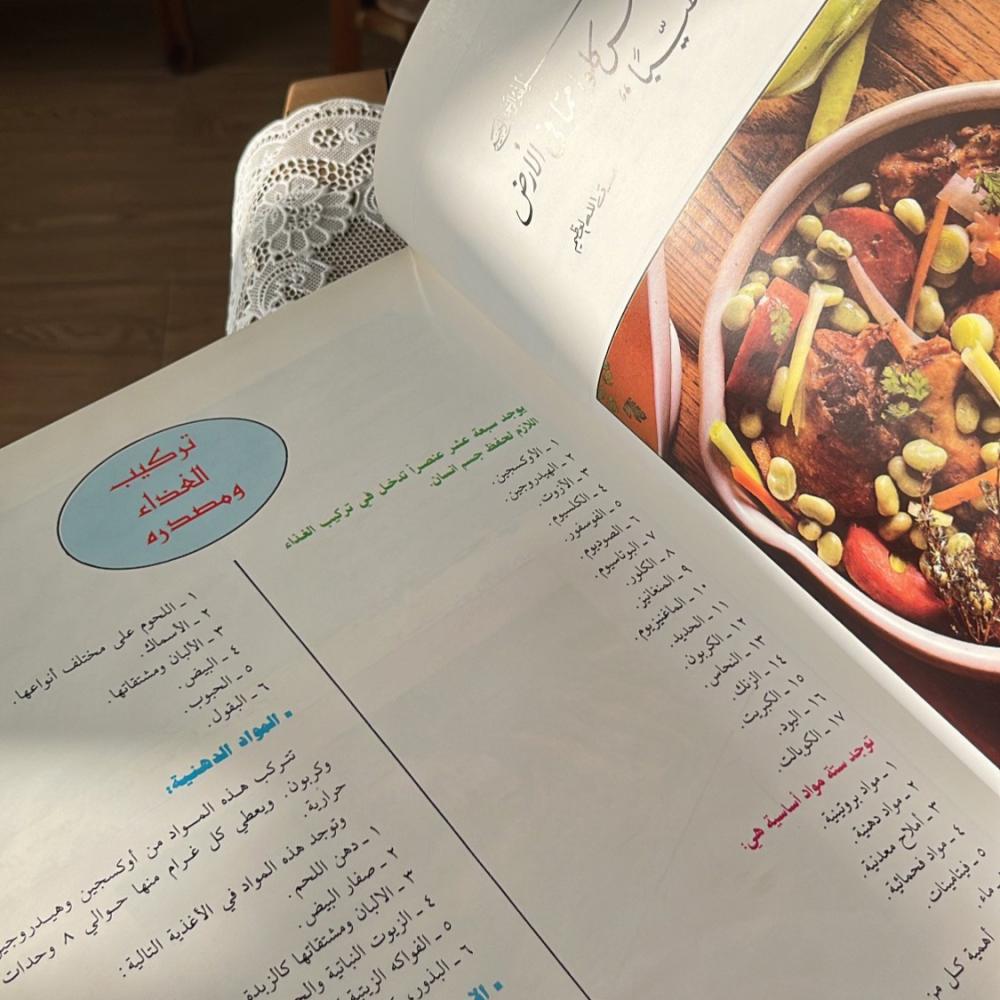 كلوا ممّا في الأرض
تركيب
الغذاء
ومصدره
يوجد سبعة عشر عنصراً تدخل في تركيب الغذاء
اللازم لحفظ جسم انسان.
١ - الأوكسجين.
٢ - الهيدروجين.
٣ - الأزوت.
٤ - الكلسيوم.
٥ - الفوسفور.
٦ - الصوديوم.
٧ - البوتاسيوم.
٨ - الكلور.
٩ - المنغانيز.
١٠ - الماغنيزيوم.
١١ - الحديد.
١٢ - الكربون.
١٣ - النحاس.
١٤ - الزنك.
١٥ - الكبريت.
١٦ - اليود.
١٧ - الكوبالت.
توجد ستة مواد أساسية هي:
١ - مواد بروتينية.
٢ - مواد دهنية.
٣ - أملاح معدنية.
٤ - مواد فحمائية.
٥ - فيتامينات.
ماء.
أهمية كل من
١ - اللحوم على مختلف أنواعها.
٢ - الأسماك.
٣ - الألبان ومشتقاتها.
٤ - البيض.
٥ - الحبوب.
٦ - البقول.
▪ المواد الدهنية:
تتركب هذه المواد من أوكسجين وهيدروجين
وكربون. ويعطي كل غرام منها حوالي ٨ وحدات
حرارية.
وتوجد هذه المواد في الأغذية التالية:
١ - دهن اللحم.
٢ - صفار البيض.
٣ - الالبان ومشتقاتها كالزبدة
٤ - الزيوت النباتية
٥ - الفواكه الزيتية
٦ - البذور